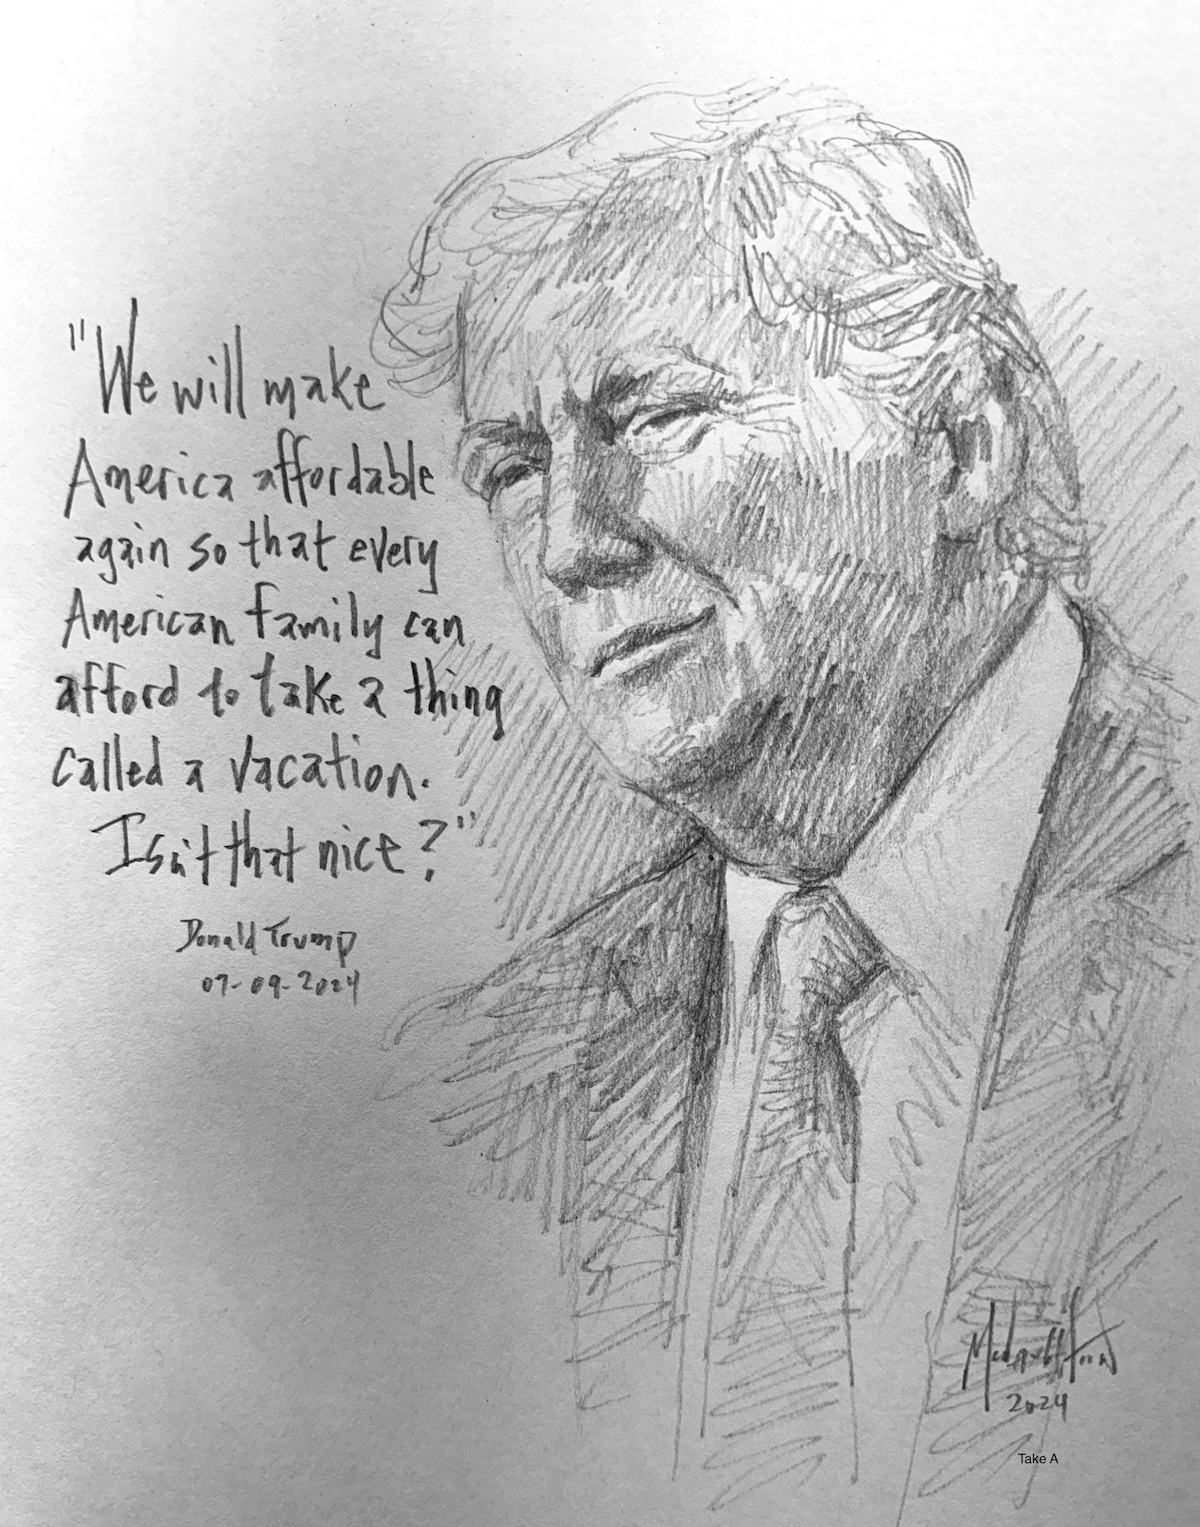 "We will make
America affordable
again so that every
American family can
afford to take a thing
called a vacation.
Isn't that nice?"
Donald Trump
07-09-2024
2024
Take A